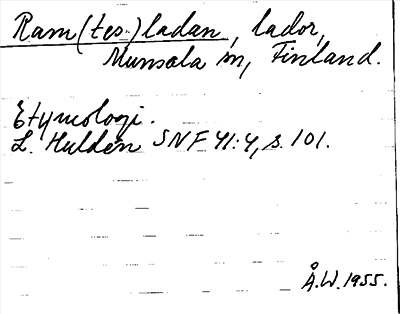 Ram(tes.)ladan, lador,
Munsala sn, Finland.
Etymologi.
L. Huldén SNF 41:4, s. 101.
Å.W. 1955.